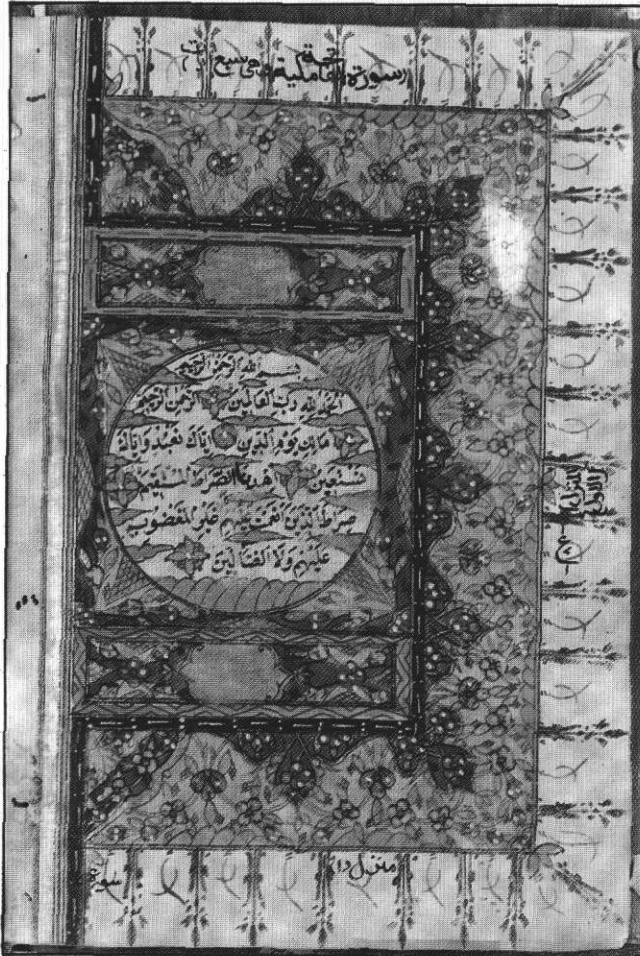 سورة الفاتحة مكية وهي سبع آيات
بسم الله الرحمن الرحيم
الحمد لله رب العالمين الرحمن الرحيم
مالك يوم الدين اياك نعبد واياك
نستعين اهدنا الصراط المستقيم
صراط الذين انعمت عليهم غير المغضوب
عليهم ولا الضالين
المنزل
الاول
ع
منزل